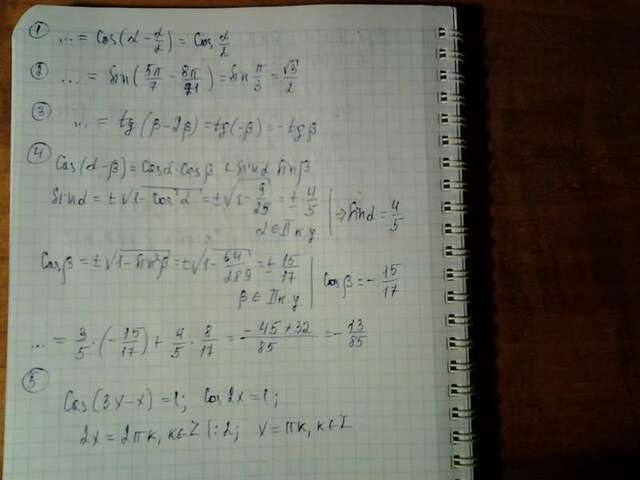 ① ... = Cos(α - α/2) = Cos α/2
② ... = Sin(5π/7 - 8π/21) = Sin π/3 = √3/2
③ ... = tg(β - 2β) = tg(-β) = -tgβ
④ Cos(α - β) = Cosα · Cosβ + Sinα · Sinβ
Sinα = ±√(1 - cos²α) = ±√(1 - 9/25) = ± 4/5 | ⇒ Sinα = 4/5
α ∈ II к.у
Cosβ = ±√(1 - Sin²β) = ±√(1 - 64/289) = ± 15/17 | Cosβ = - 15/17
β ∈ II к.у
... = 3/5 · (- 15/17) + 4/5 · 8/17 = (-45 + 32)/85 = - 13/85
⑤
Cos(3x - x) = 1; Cos 2x = 1;
2x = 2πк, к∈Z |:2; x = πк, к∈Z